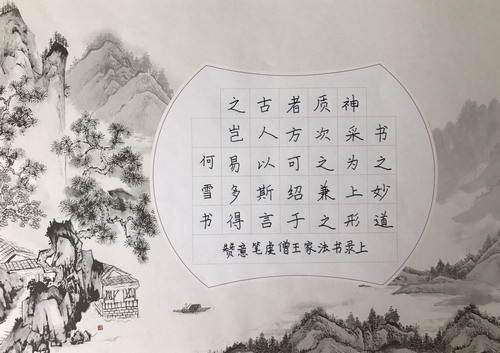 书之妙道
神采为上形
质次之兼之
者方可绍于
古人以斯言
之岂易多得
何雪书
上录书法家王僧虔笔意赞